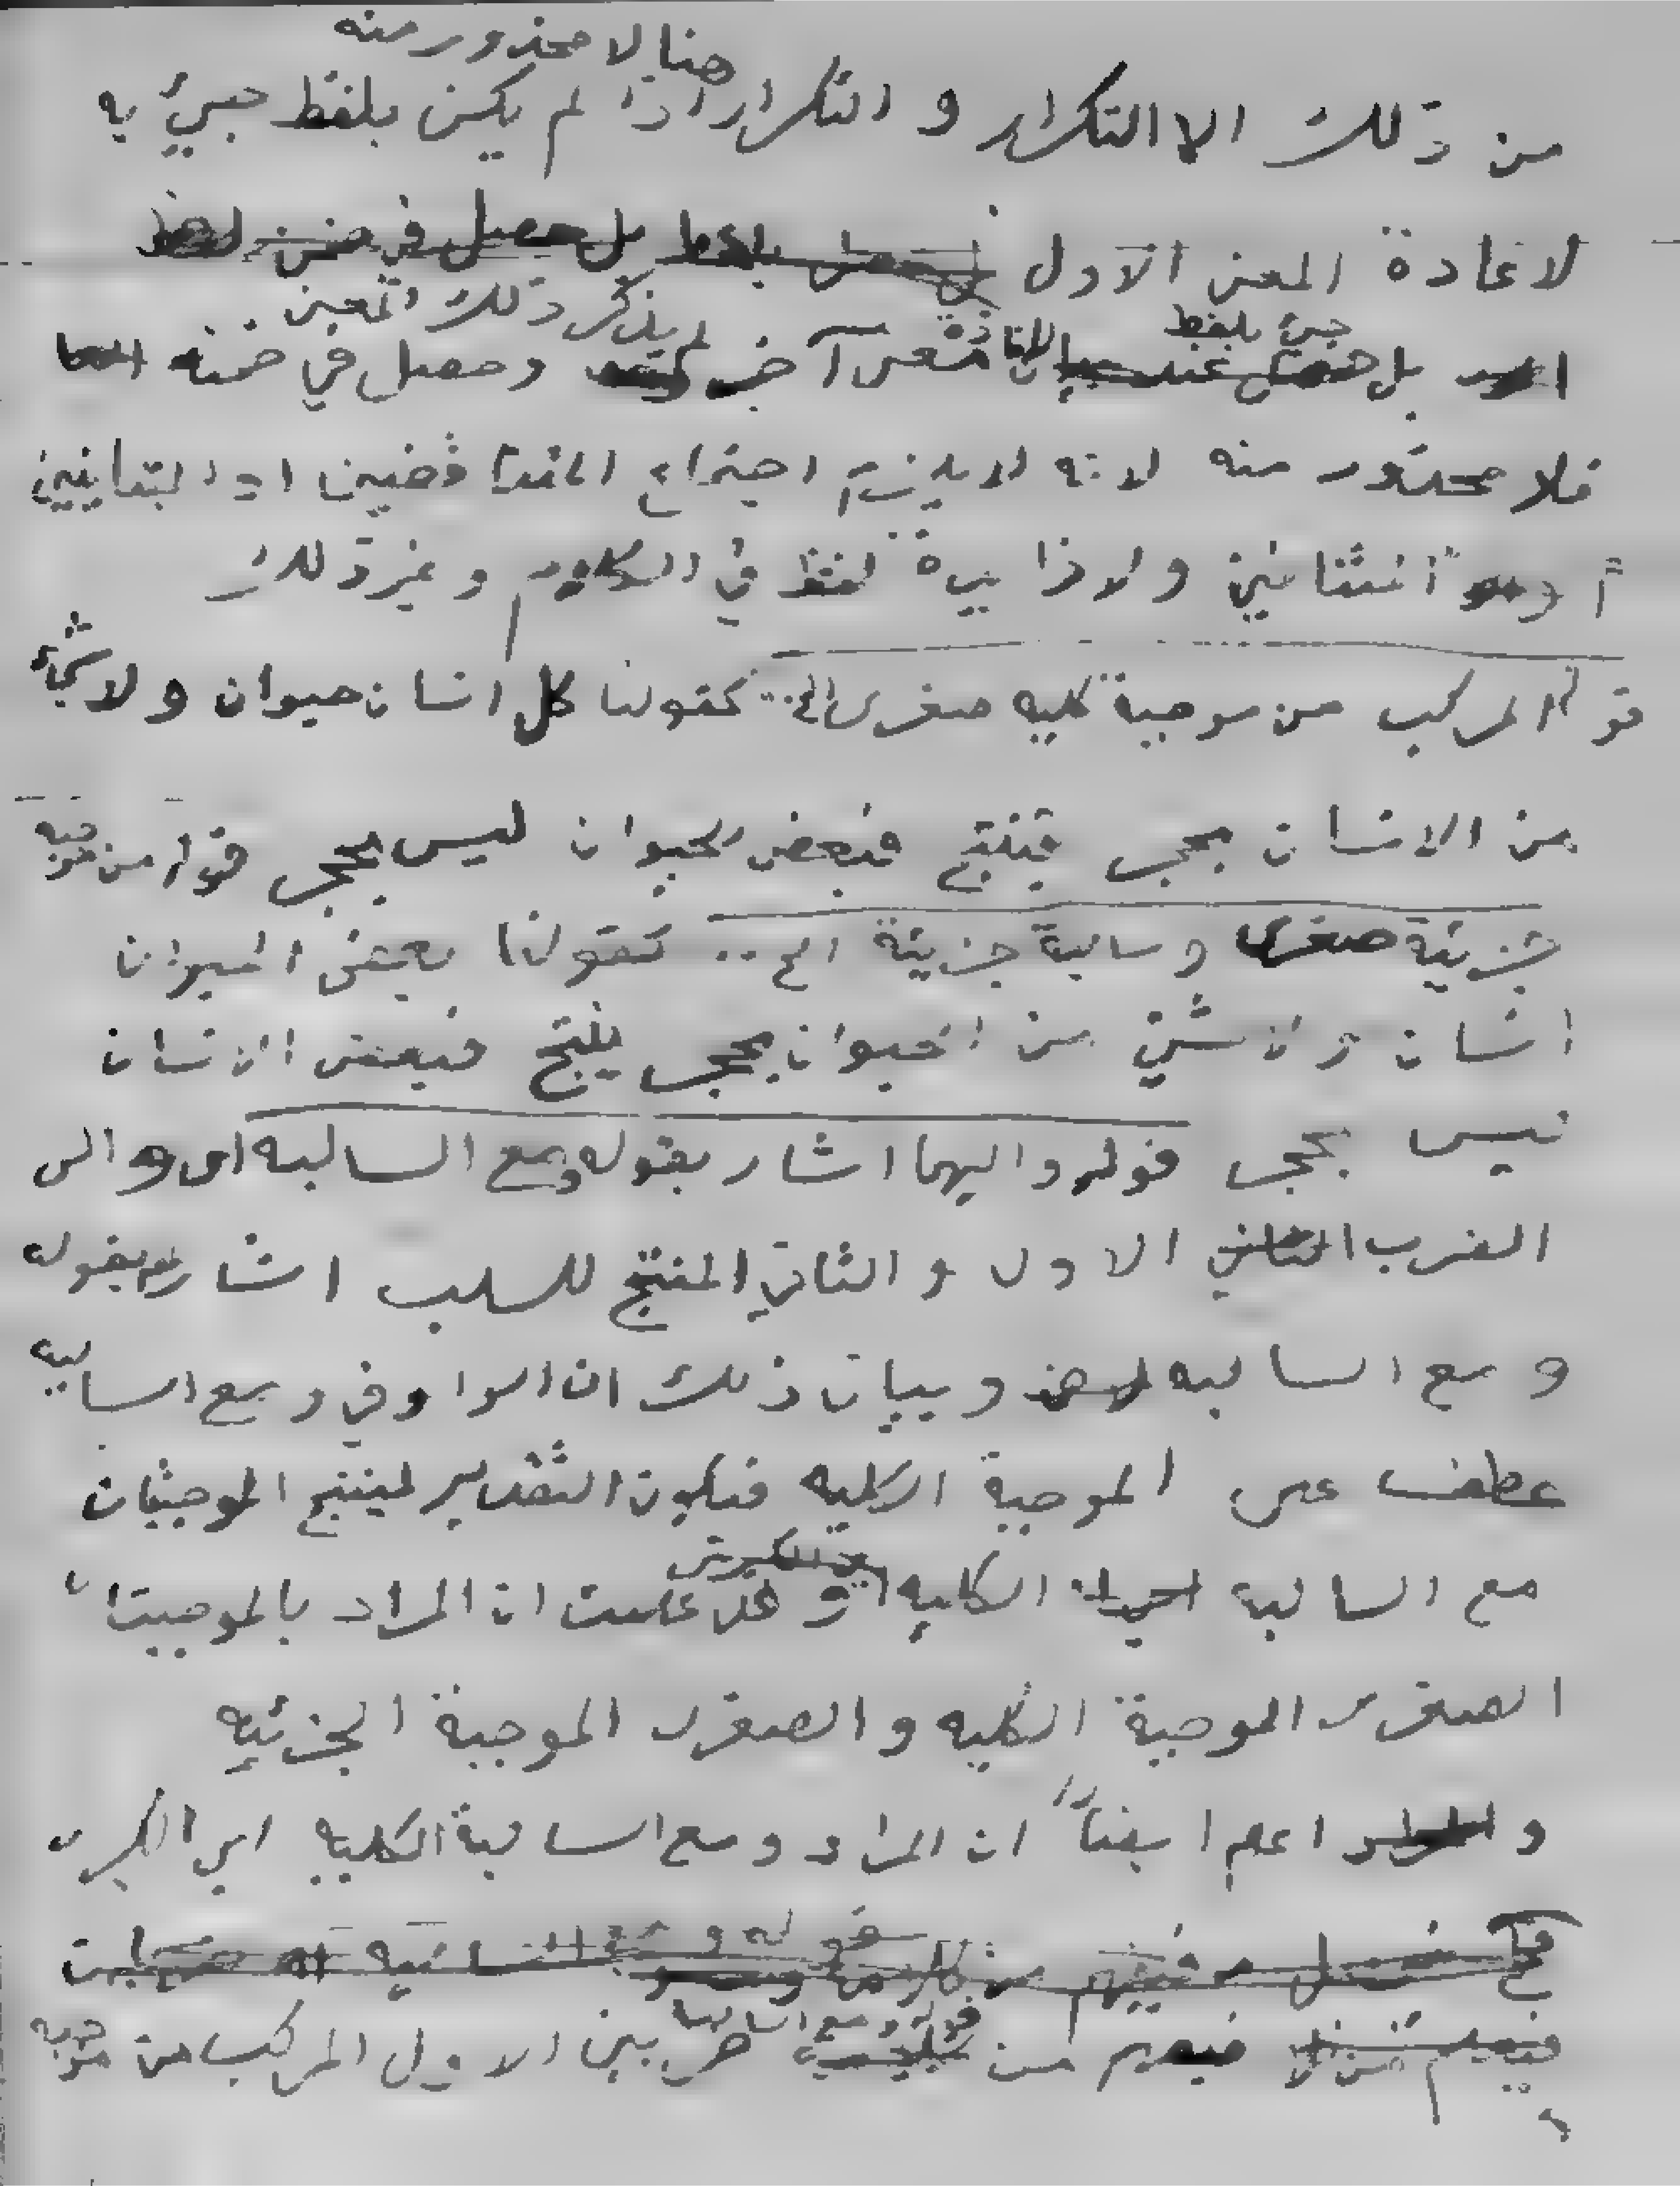 هنا لا محذور منه
من ذلك الا التكرار و التكرار اذا لم يكن بلفظ جيئ به
لاعادة المعنى الاول بل حصل في ضمن
لم يذكر ذلك المعنى
جيئ بلفظ لافادة
بل معنى آخر وحصل في ضمنه
فلا محذور منه لانه لا يلزم اجتماع المتناقضين او المتباينين
ولا زيادة لفظ في الكلام و غير ذلك
قوله المركب من موجبة كليه صغرى الخ.. كقولنا كل انسان حيوان ولا شيء
من الانسان بحجر ينتج فبعض الحيوان ليس بحجر قوله من موجبه
جزئية صغرى وسالبة جزئية الخ .. كقولنا بعض الحيوان
انسان ولا شيئ من الحيوان بحجر ينتج فبعض الانسان
ليس بحجر قوله واليهما اشار بقوله ومع السالبه اى والى
الضرب الاول و الثاني المنتج للسلب اشار بقوله
ومع السالبه وبيان ذلك ان الواو في ومع السالبه
عطف على الموجبة الكليه فيكون التقدير لينتج الموجبتان
مع السالبة الكليه و قد علمت ان المراد بالموجبتان
الصغرى الموجبة الكليه و الصغرى الموجبة الجزئيه
و اعلم ايضاً ان المراد ومع السالبة الكليه اي الكبرى
قوله و مع السالبه
فيفهم من قوله ومع السالبه ضربين الاول المركب من موجبه